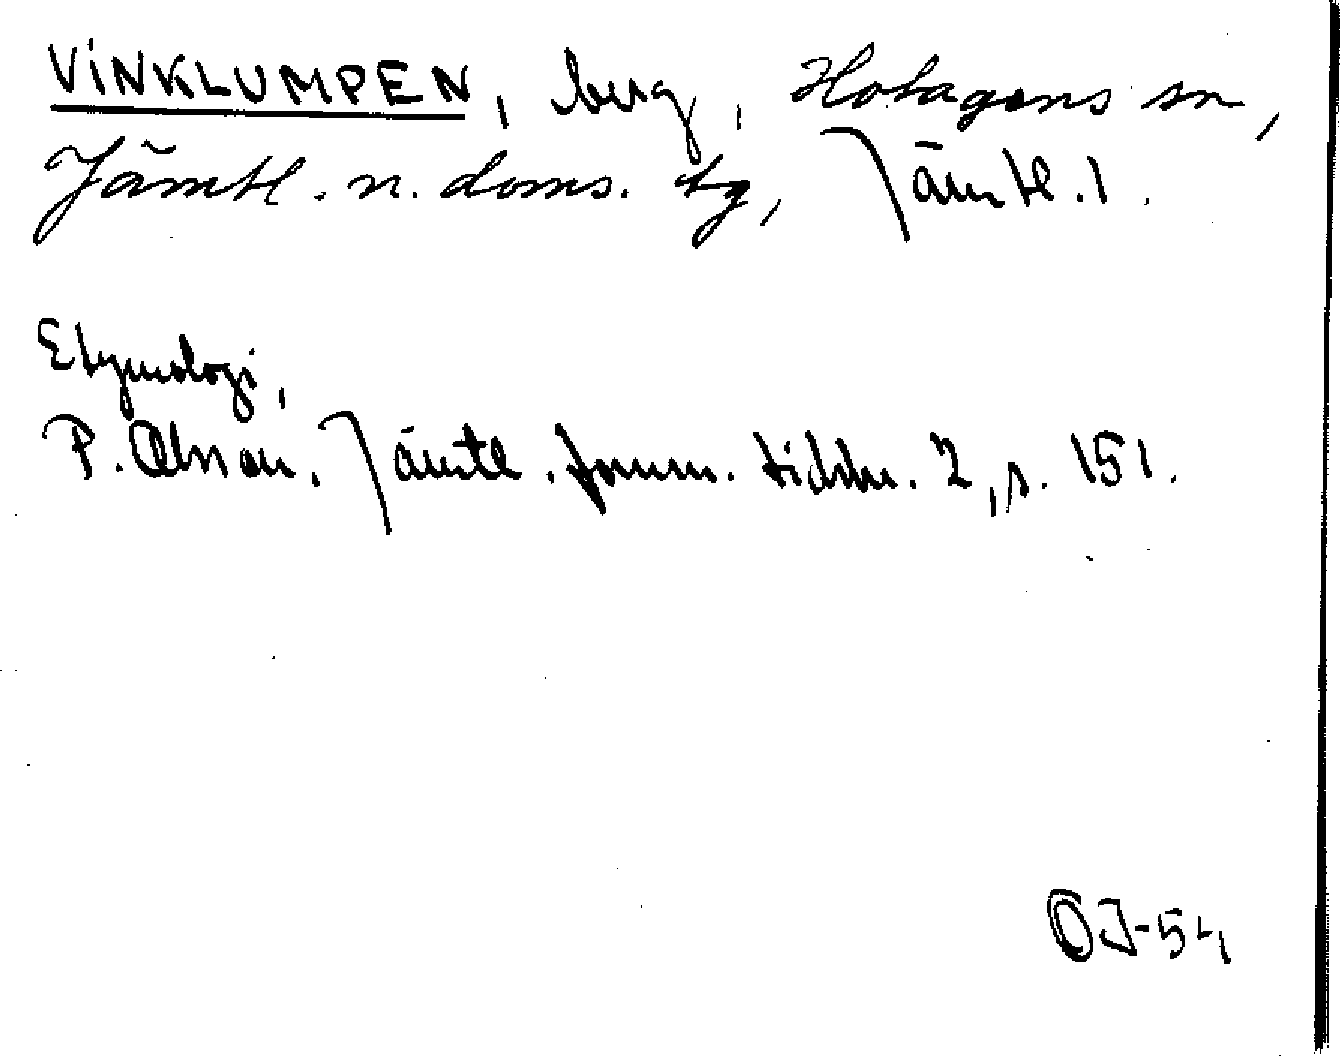 VINKLUMPEN, berg, Hotagens sn,
Jämtl. n. doms. tg, Jämtl. l.
Etymologi,
P. Olsson. Jämtl. fornm. tidskr. 2, s. 151.
OJ-54